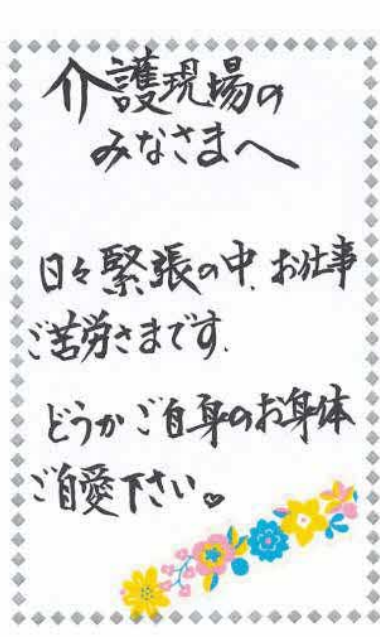 介護現場の
みなさまへ
日々緊張の中、お仕事
ご苦労さまです.
どうかご自身のお身体
ご自愛下さい。